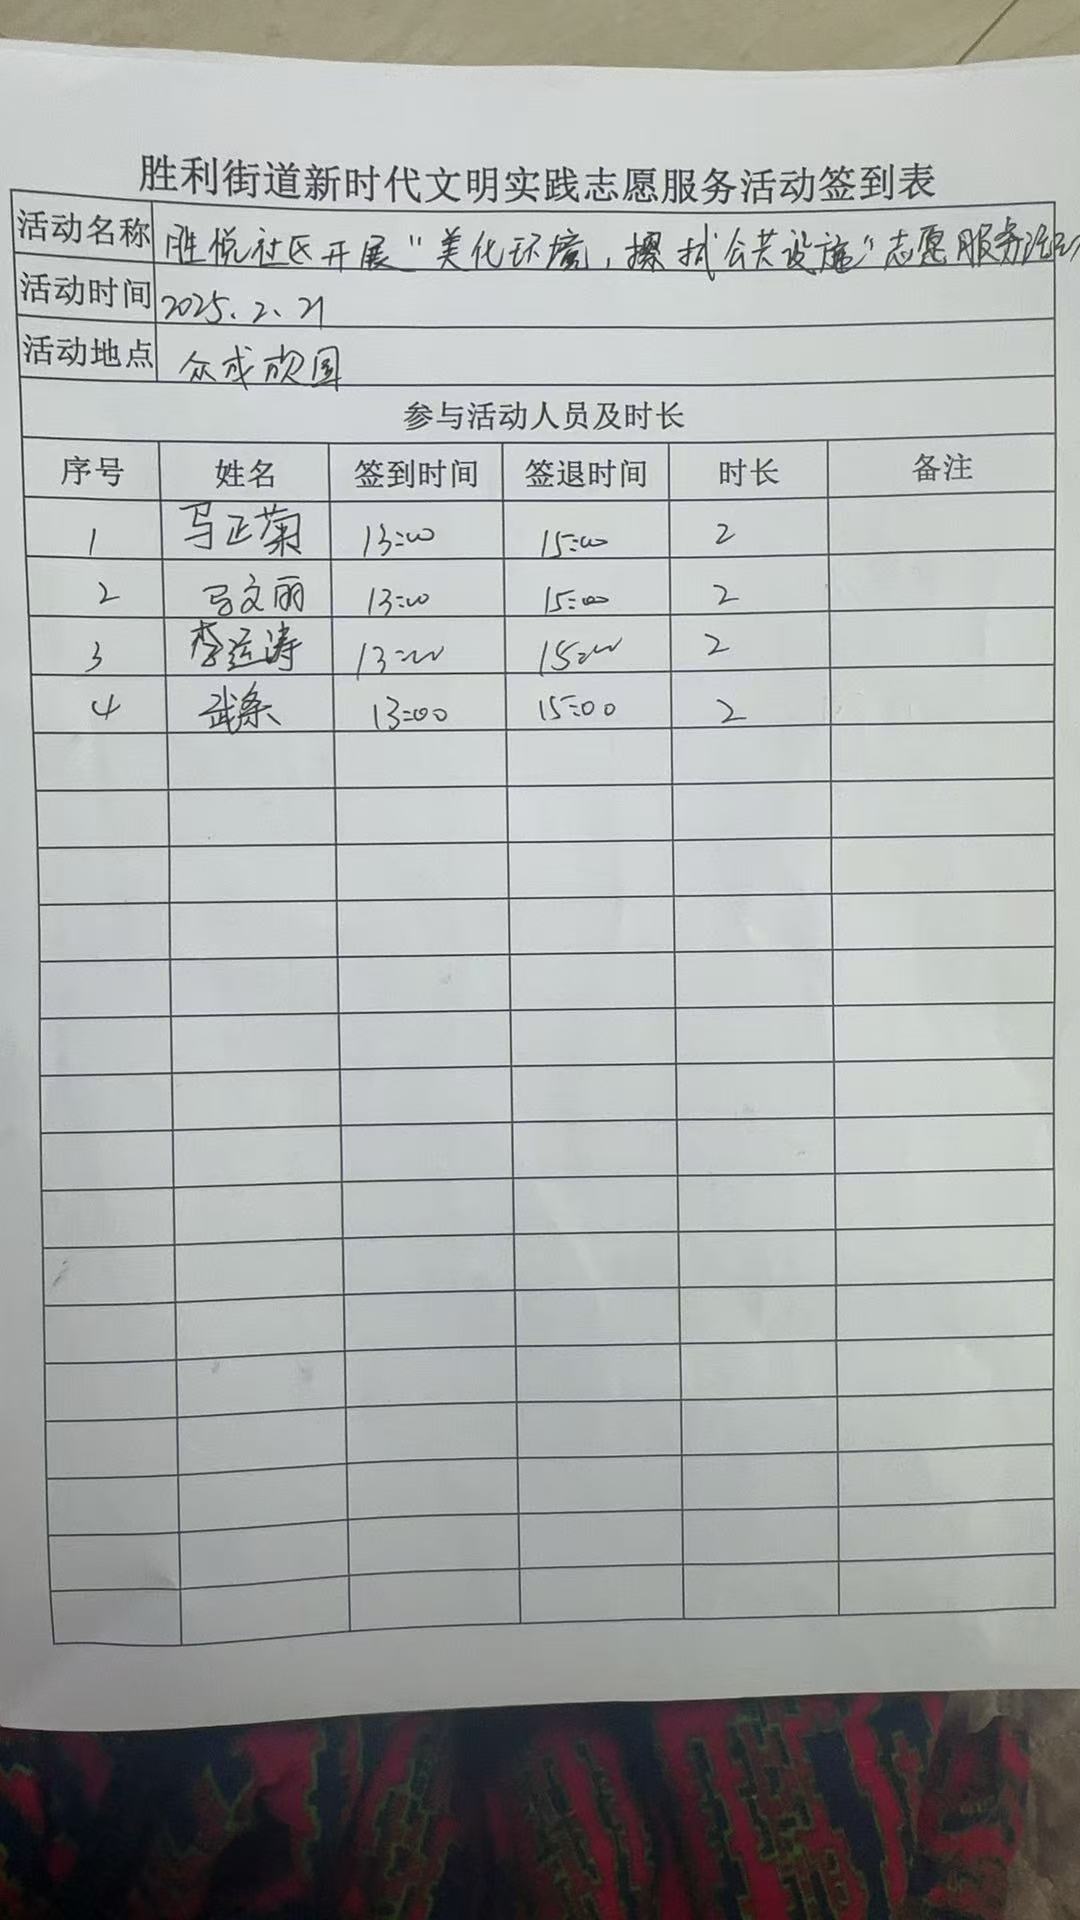 胜利街道新时代文明实践志愿服务活动签到表
活动名称 胜悦社区开展"美化环境，擦拭公共设施"志愿服务活动
活动时间 2025.2.21
活动地点 众成欣园
参与活动人员及时长
序号 姓名 签到时间 签退时间 时长 备注
1 马正菊 13:00 15:00 2
2 马文丽 13:00 15:00 2
3 李运涛 13:00 15:00 2
4 武 13:00 15:00 2